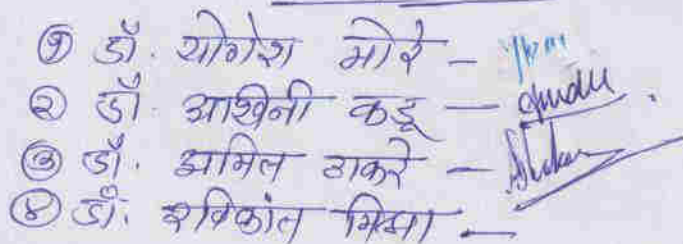 १ डॉ. योगेश मोरे -
२ डॉ. आश्विनी कडू -
३ डॉ. अमिल ठाकरे -
४ डॉ. रविकांत मिश्रा -